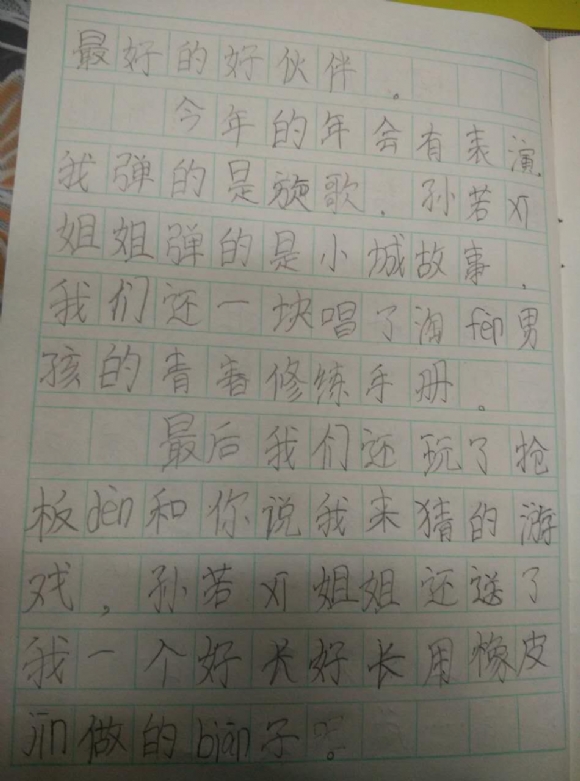 最好的好伙伴。
今年的年会有表演
我弹的是旋歌,孙若刈
姐姐弹的是小城故事,
我们还一块唱了淘fèn男
孩的青春修练手册。
最后我们还玩了抢
板dèn和你说我来猜的游
戏,孙若刈姐姐还送了
我一个好长好长用橡皮
jīn做的biān子。